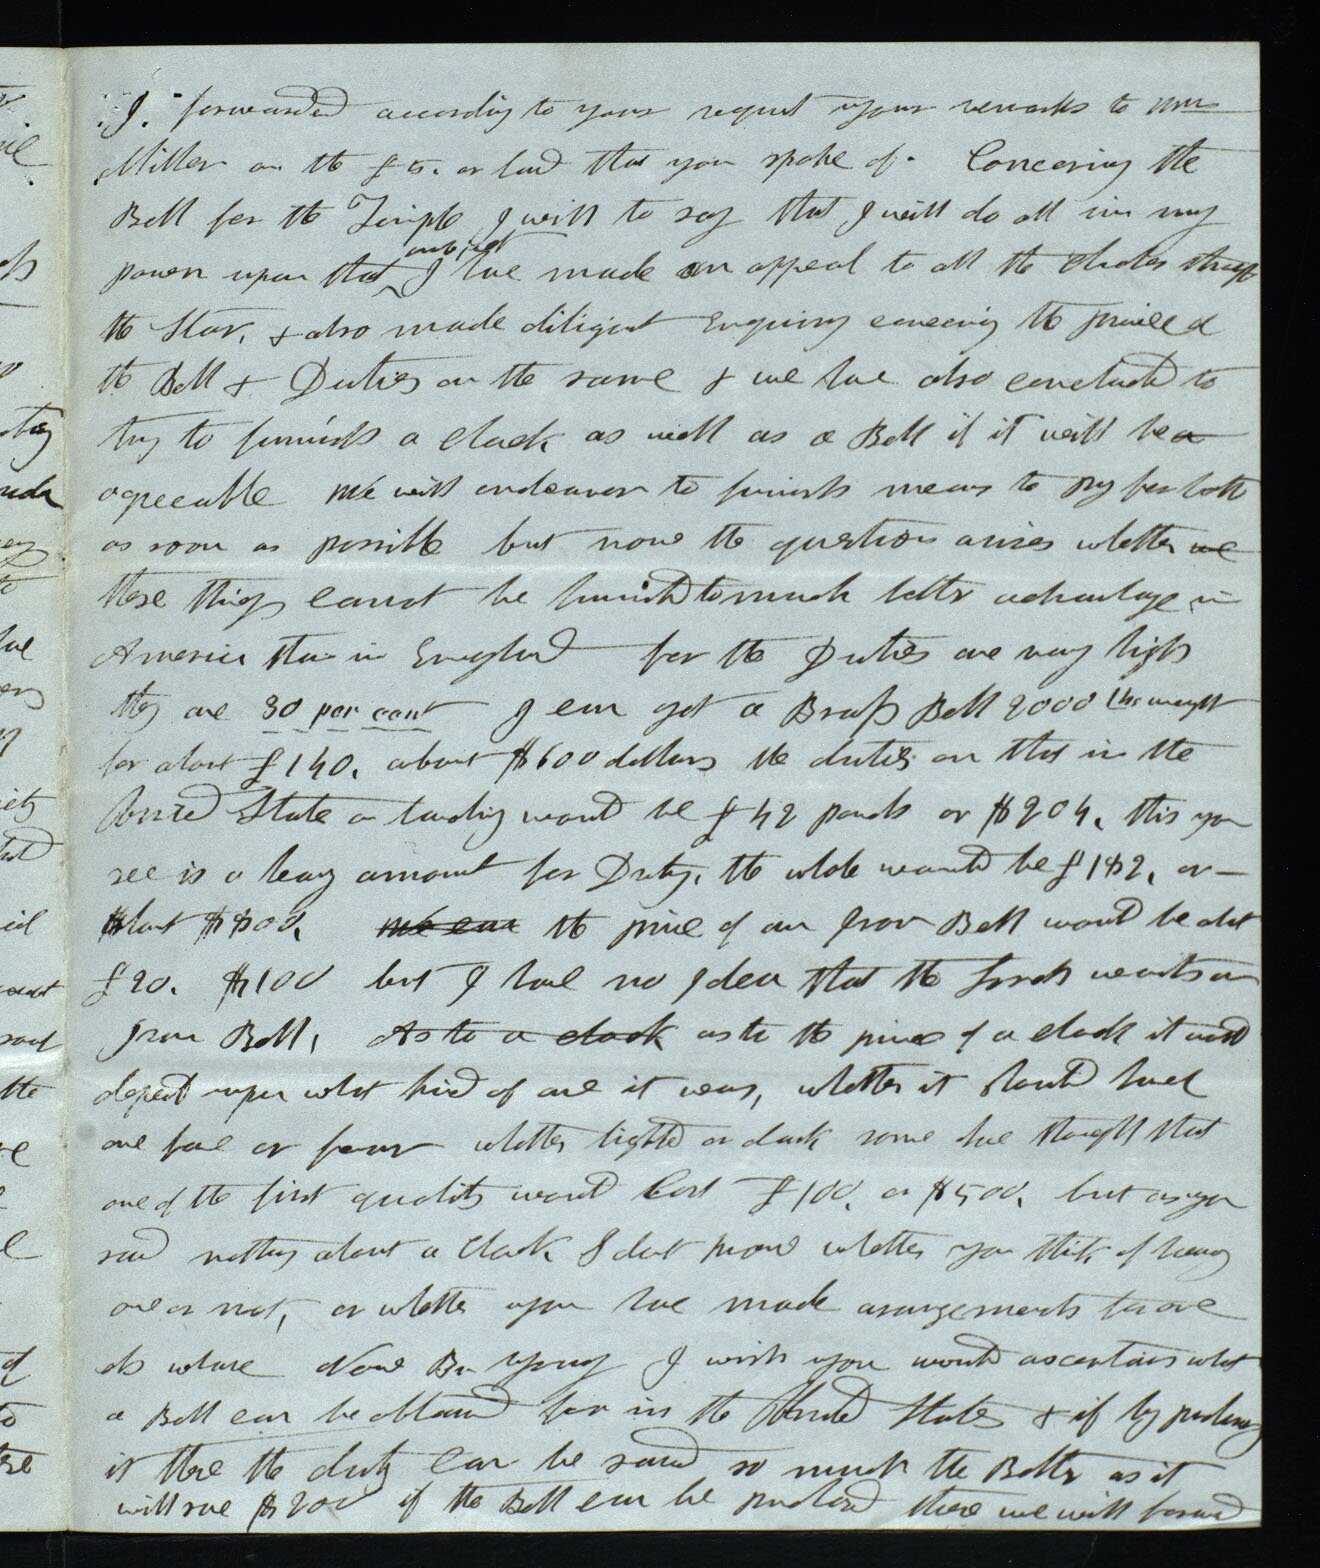 I forwarded according to your request your remarks to Mr
Miller on the £5. or land that you spoke of. Concerning the
Bell for the Temple I will to say that I will do all in my
power upon that subject I have made an appeal to all the through
the Star, & also made diligent Enquiry concerning the price of
the Bell & Duties on the same & we have also concluded to
try to furnish a clock as well as a Bell if it will be a
agreeable we will endeavor to furnish means to pay for both
as soon as possible but now the question arises whether we
these things cannot be furnished to much better advantage in
America than in England for the Duties are very high
they are 30 per cent I can get a Brass Bell 2000 lbs weight
for about £140. about $600 dollars the duties on that in the
United State on landing would be £42 pounds or $204. this you
see is a heavy amount for Duty. the whole would be £182. or
about $800. we can the price of an Iron Bell would be about
£20. $100 but I have no Idea that the Lord wants an
Iron Bell. As to a clock as to the price of a clock it would
depend upon what kind of one it was, whether it should have
one face or four whether lighted or dark some have thought that
one of the first quality would Cost £100. or $500. but as you
said nothing about a Clock I dont know whether you think of having
one or not, or whether you have made arangements for one
els whare Now Br Young I wish you would ascertain what
a Bell can be obtained for in the United States & if by purchasing
it there the duty can be saved so much the Better as it
will save $200 if the Bell can be purchased there we will forward